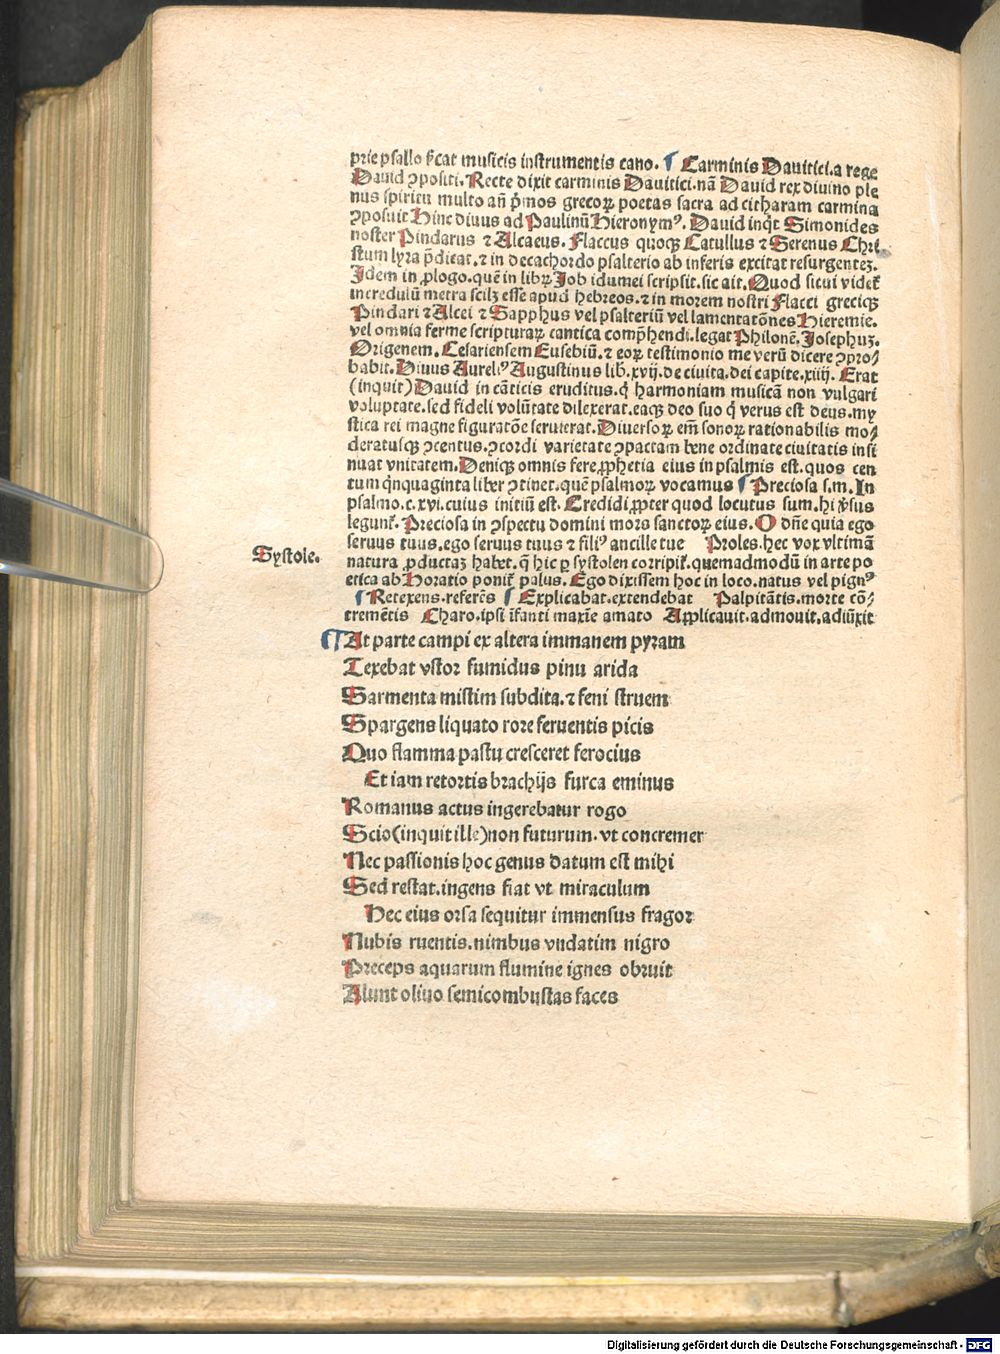 prie psallo ſ̄cat musicis instrumentis cano. ¶ Carminis Dauitici.a rege
Dauid ꝯpositi. Recte dixit carminis Dauitici.nā Dauid rex diuino ple
nus spiritu multo añ p̄mos grecoꝝ poetas sacra ad citharam carmina
ꝯposuit Hinc diuus ad Paulinū Hieronymꝰ. Dauid inq̄t Simonides
noster Pindarus ⁊ Alcaeus. Flaccus quoqꝫ Catullus ⁊ Serenus Chri
stum lyra p̄dicat.⁊ in decachordo psalterio ab inferis excitat resurgenteꝫ.
Idem in ꝓlogo.quē in libꝝ Job idumei scripsit.sic ait. Quod si cui videt̄
incredulū metra scilꝫ esse apud hebreos.⁊ in morem nostri Flacci greciqꝫ
Pindari ⁊ Alcei ⁊ Sapphus vel psalteriū vel lamentatōnes Hieremie.
vel omnia ferme scripturaꝝ cantica comp̄hendi.legat Philonē. Josephuꝫ.
Origenem. Cesariensem Eusebiū.⁊ eoꝝ testimonio me verū dicere ꝯpro-
babit. Diuus Aureliꝰ Augustinus lib.xvij.de ciuita.dei capite.xiiij. Erat
(inquit) Dauid in cāticis eruditus.q̄ harmoniam musicā non vulgari
voluptate.sed fideli volūtate dilexerat.eaqꝫ deo suo q̄ verus est deus.my
stica rei magne figuratōe seruierat. Diuersoꝝ em̄ sonoꝝ rationabilis mo-
deratusqꝫ ꝯcentus.ꝯcordi varietate ꝯpactam bene ordinate ciuitatis insi
nuat vnitatem. Deniqꝫ omnis fere ꝓphetia eius in psalmis est.quos cen
tum q̄nquaginta liber ꝯtinet.quē psalmoꝝ vocamus ¶ Preciosa s.m. In
psalmo.c.xvi.cuius initiū est. Credidi ꝓpter quod locutus sum.hi v̄sus
legunt̄. Preciosa in ꝯspectu domini mors sanctoꝝ eius. O dn̄e quia ego
seruus tuus.ego seruus tuus ⁊ filiꝰ ancille tue Proles.hec vox vltimā
Systole.
natura ꝓductaꝫ habet.q̄ hic ꝑ systolen corripit̄.quemadmodū in arte po
etica ab Horatio ponit̄ palus. Ego dixissem hoc in loco.natus vel pignꝰ
¶ Retexens.referēs ¶ Explicabat.extendebat Palpitātis.morte cō-
tremētis Charo.ipsi īfanti maxīe amato Applicauit.admouit.adiūxit
¶ At parte campi ex altera immanem pyram
Texebat vstor fumidus pinu arida
Sarmenta mistim subdita.⁊ feni struem
Spargens liquato rore feruentis picis
Quo flamma pastu cresceret ferocius
Et iam retortis brachijs furca eminus
Romanus actus ingerebatur rogo
Scio(inquit ille)non futurum.vt concremer
Nec passionis hoc genus datum est mihi
Sed restat.ingens fiat vt miraculum
Hec eius orsa sequitur immensus fragor
Nubis ruentis.nimbus vndatim nigro
Preceps aquarum flumine ignes obruit
Alunt oliuo semicombustas faces
Digitalisierung gefördert durch die Deutsche Forschungsgemeinschaft - DFG